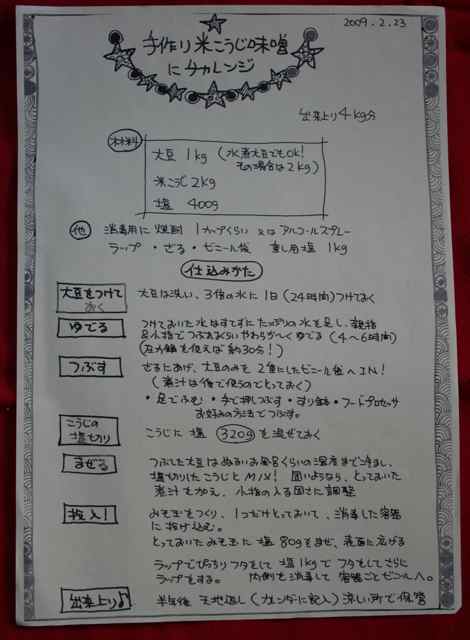 2009.2.23
手作り米こうじ味噌
にチャレンジ
出来上り4kg分
材料
大豆 1kg (水煮大豆でもOK!
その場合は2kg)
米こうじ 2kg
塩 400g
他 消毒用に 焼酎 1カップくらい 又は アルコールスプレー
ラップ・ざる・ビニール袋 重し用塩 1kg
仕込みかた
大豆をつけて
おく
大豆は洗い、3倍の水に1日(24時間)つけておく
ゆでる
つけておいた水はすてずにたっぷりの水を足し、親指
&小指でつぶれるくらいやわらか〜くゆでる(4〜6時間)
(圧力鍋を使えば約30分!)
つぶす
ざるにあげ、大豆のみを2重にしたビニール袋へIN!
(煮汁は後で使うのでとっておく)
・足でふむ・手で押しつぶす・すり鉢・フードプロセッサ
お好みの方法でつぶす。
こうじの
塩切り
こうじに 塩 320g を混ぜておく
まぜる
つぶした大豆はぬるいお風呂くらいの温度まで冷まし、
塩切りしたこうじとMIX! 固いようなら、とっておいた
煮汁を加え、小指の入る固さに調整
投入!
みそ玉をつくり、1つだけとっておいて、消毒した容器
に投げ込む。
とっておいたみそ玉に 塩 80gをまぜ、表面に広げる
ラップでぴっちりフタをして 塩1kgで フタをしてさらに
ラップをする。 内側を消毒して 容器ごとビニールへ。
出来上り♪
半年後 天地返し(カレンダーに記入) 涼しい所で保管